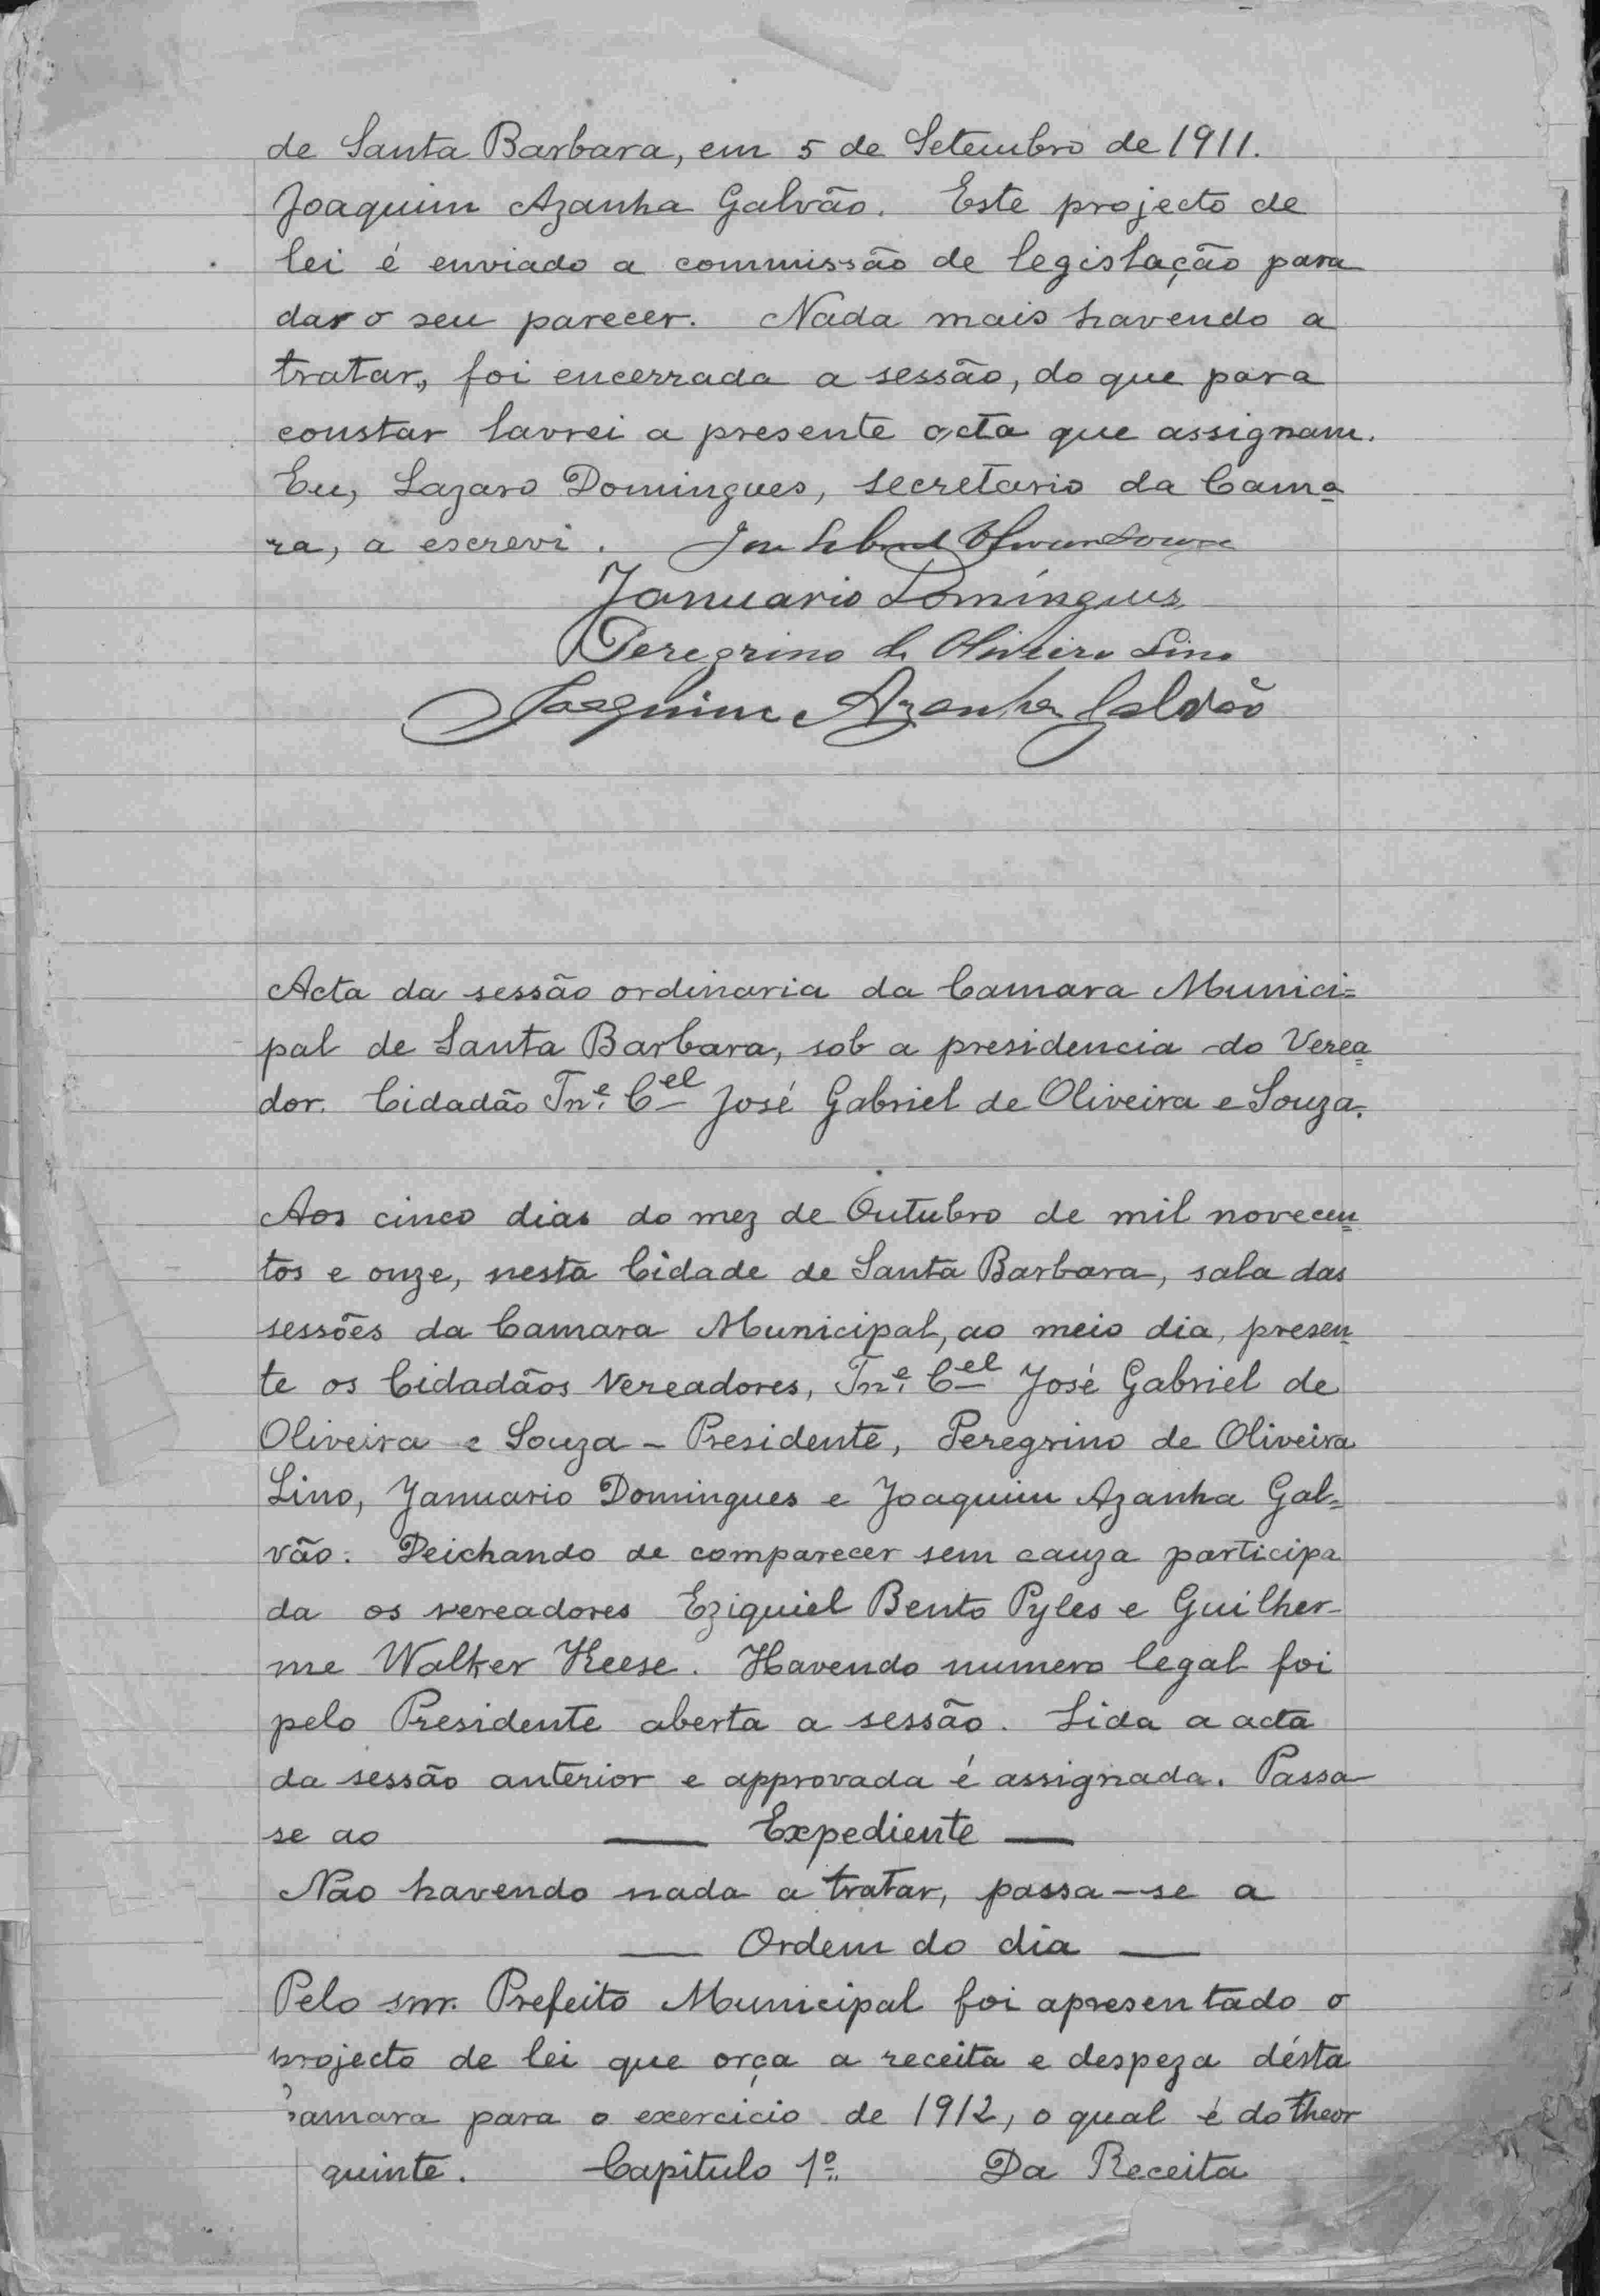 de Santa Barbara, em 5 de Setembro de 1911.
Joaquim Azanha Galvão. Este projecto de
lei é enviado a commissão de legislação para
dar o seu parecer. Nada mais havendo a
tratar, foi encerrada a sessão, do que para
constar lavrei a presente acta que assignam.
Eu, Lazaro Domingues, secretario da Cama
ra, a escrevi.
Januario Domingues
Peregrino de Oliveira Lino
Joaquim Azanha Galvão
Acta da sessão ordinaria da Camara Munici=
pal de Santa Barbara, sob a presidencia do Verea
dor. Cidadão Tne. Cel José Gabriel de Oliveira e Souza.
Aos cinco dias do mez de Outubro de mil novecen
tos e onze, nesta Cidade de Santa Barbara, sala das
sessões da Camara Municipal, ao meio dia, presen
te os Cidadãos Vereadores, Tne. Cel José Gabriel de
Oliveira e Souza - Presidente, Peregrino de Oliveira
Lino, Januario Domingues e Joaquim Azanha Gal=
vão. Deichando de comparecer sem cauza participa
da os vereadores Eziquiel Bento Pyles e Guilher-
me Walker Keese. Havendo numero legal foi
pelo Presidente aberta a sessão. Lida a acta
da sessão anterior e approvada é assignada. Passa
se ao — Expediente —
Nao havendo nada a tratar, passa-se a
— Ordem do dia —
Pelo snr. Prefeito Municipal foi apresentado o
projecto de lei que orça a receita e despeza désta
amara para o exercicio de 1912, o qual é do theor
quinte. Capitulo 1º. Da Receita